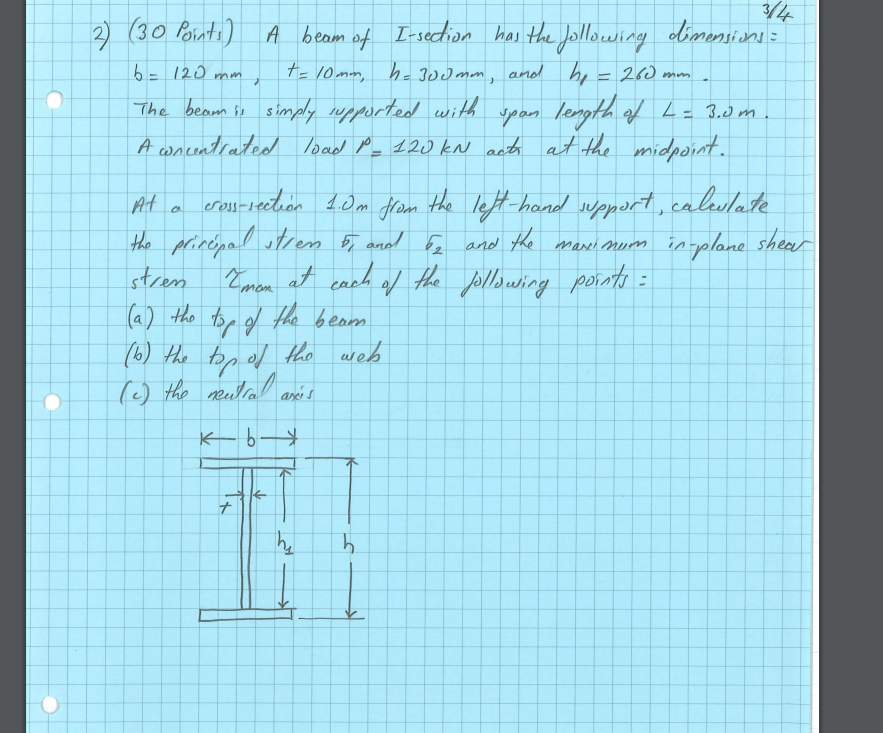 3/4
2) (30 Points) A beam of I-section has the following dimensions:
b = 120 mm, t = 10 mm, h = 300 mm, and h₁ = 260 mm.
The beam is simply supported with span length of L = 3.0 m.
A concentrated load P = 120 kN acts at the midpoint.
At a cross-section 1.0 m from the left-hand support, calculate
the principal stress σ₁ and σ₂ and the maximum in-plane shear
stress τmax at each of the following points:
(a) the top of the beam
(b) the top of the web
(c) the neutral axis
b
t
h₁ h